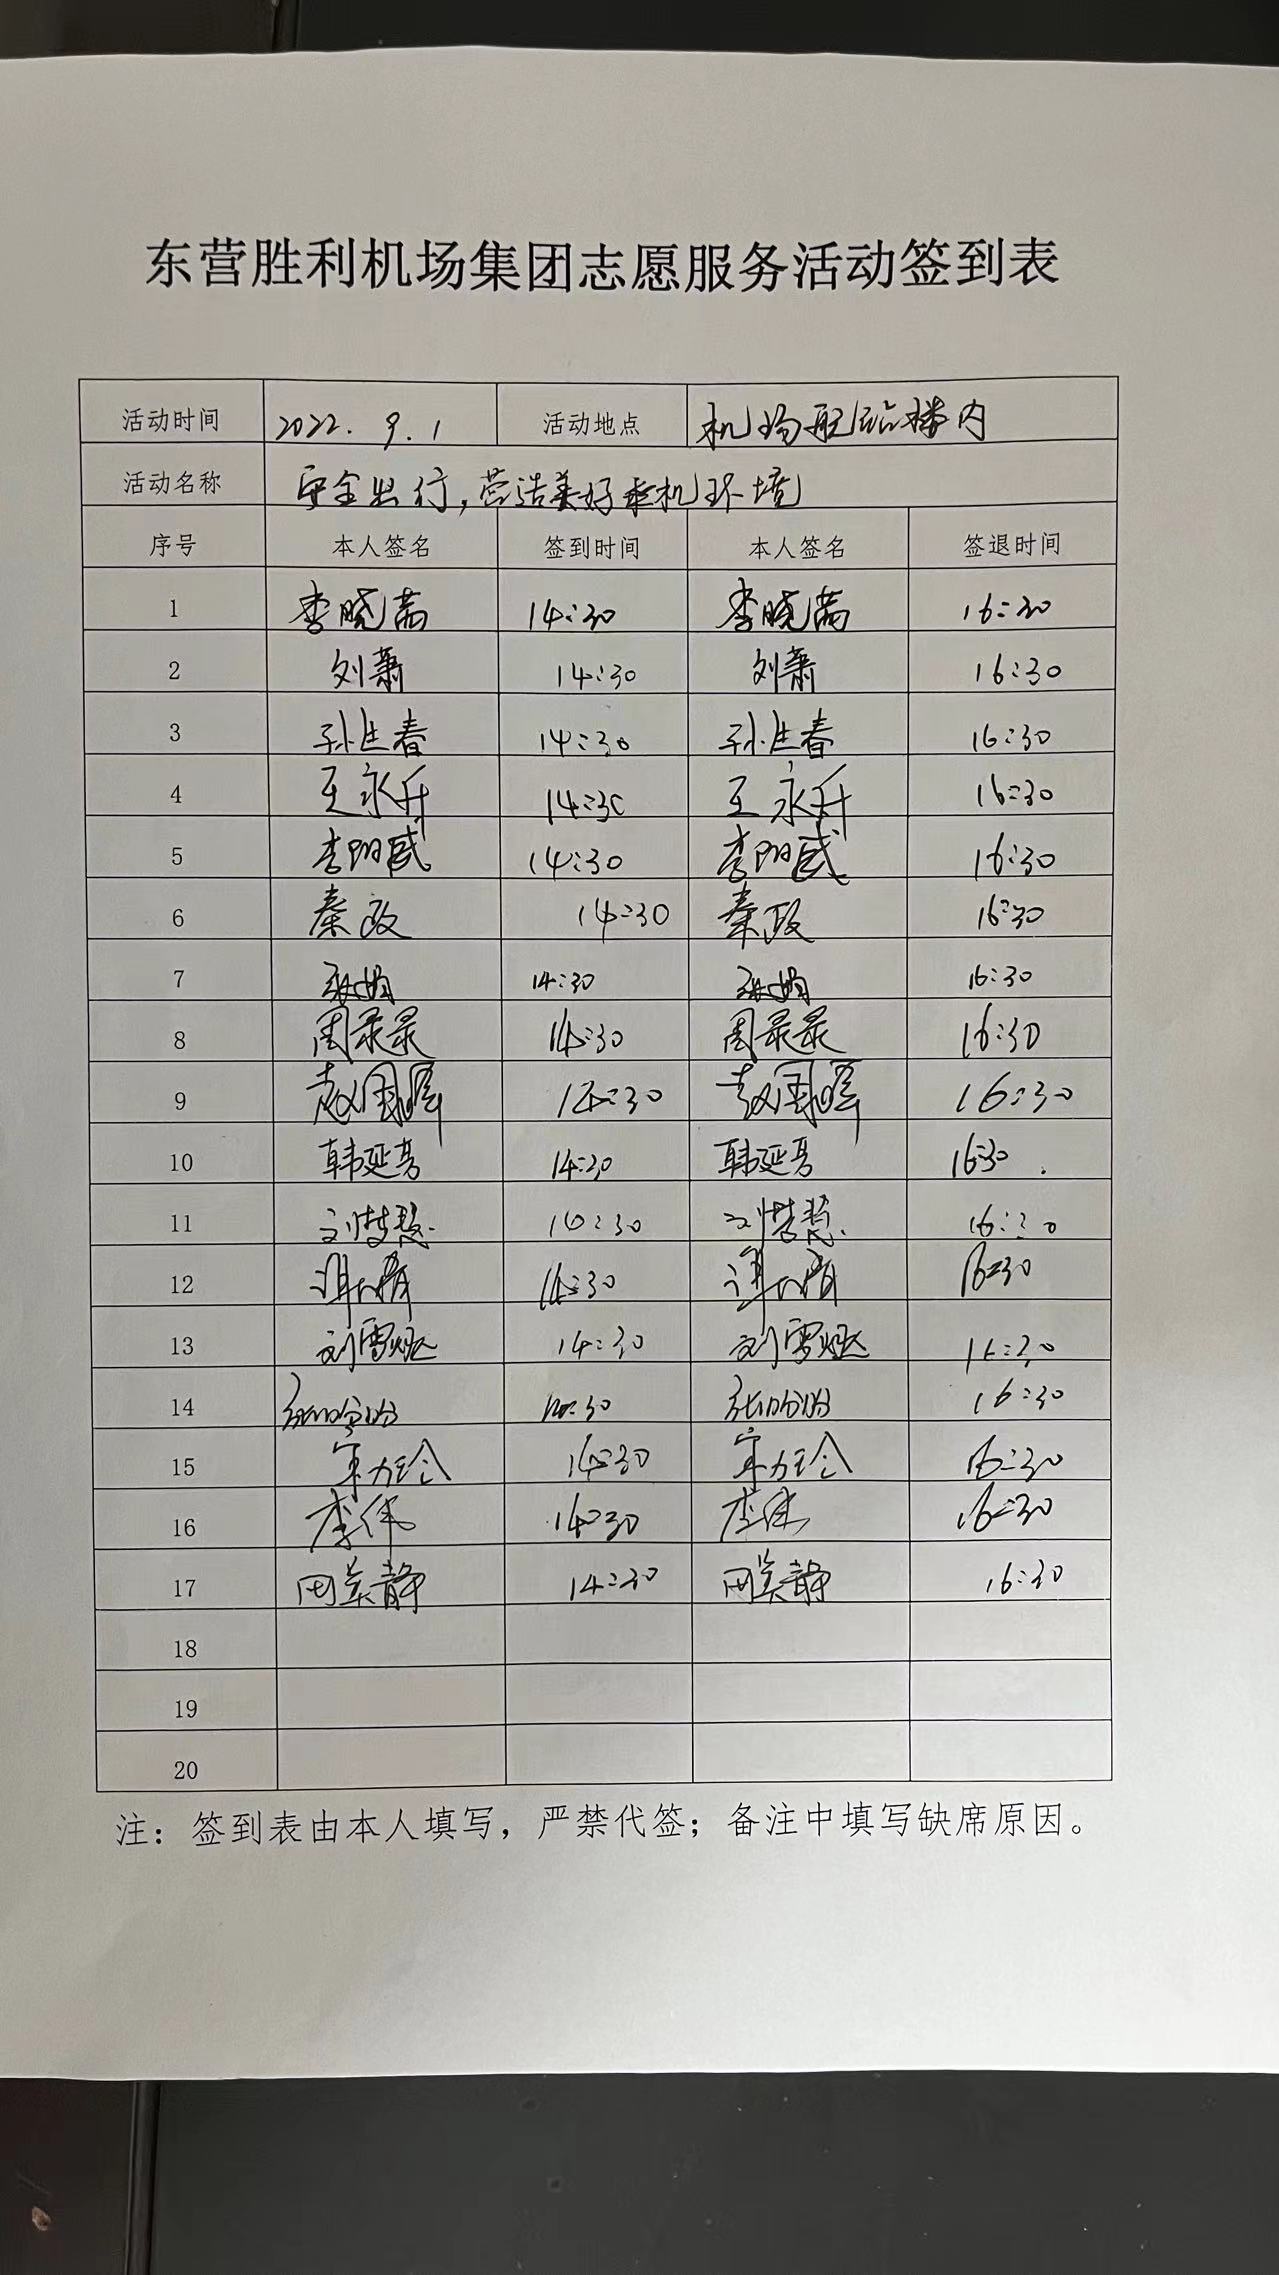 东营胜利机场集团志愿服务活动签到表
活动时间 2022.9.1 活动地点 机场航站楼内
活动名称 安全出行,营造美好乘机环境
序号 本人签名 签到时间 本人签名 签退时间
1 李晓 14:30 李晓 16:30
2 刘萧 14:30 刘萧 16:30
3 孙生春 14:30 孙生春 16:30
4 王永升 14:30 王永升 16:30
5 李阳威 14:30 李阳威 16:30
6 秦政 14:30 秦政 16:30
7 14:30 16:30
8 周录录 14:30 周录录 16:30
9 赵国晖 14:30 赵国晖 16:30
10 韩延芳 14:30 韩延芳 16:30
11 刘慧 刘慧 16:30
12 14:30 16:30
13 刘雪燃 14:30 刘雪燃 16:30
14 张盼盼 14:30 张盼盼 16:30
15 14:30 16:30
16 李伟 14:30 李伟 16:30
17 田美静 14:30 田美静 16:30
18
19
20
注：签到表由本人填写，严禁代签；备注中填写缺席原因。